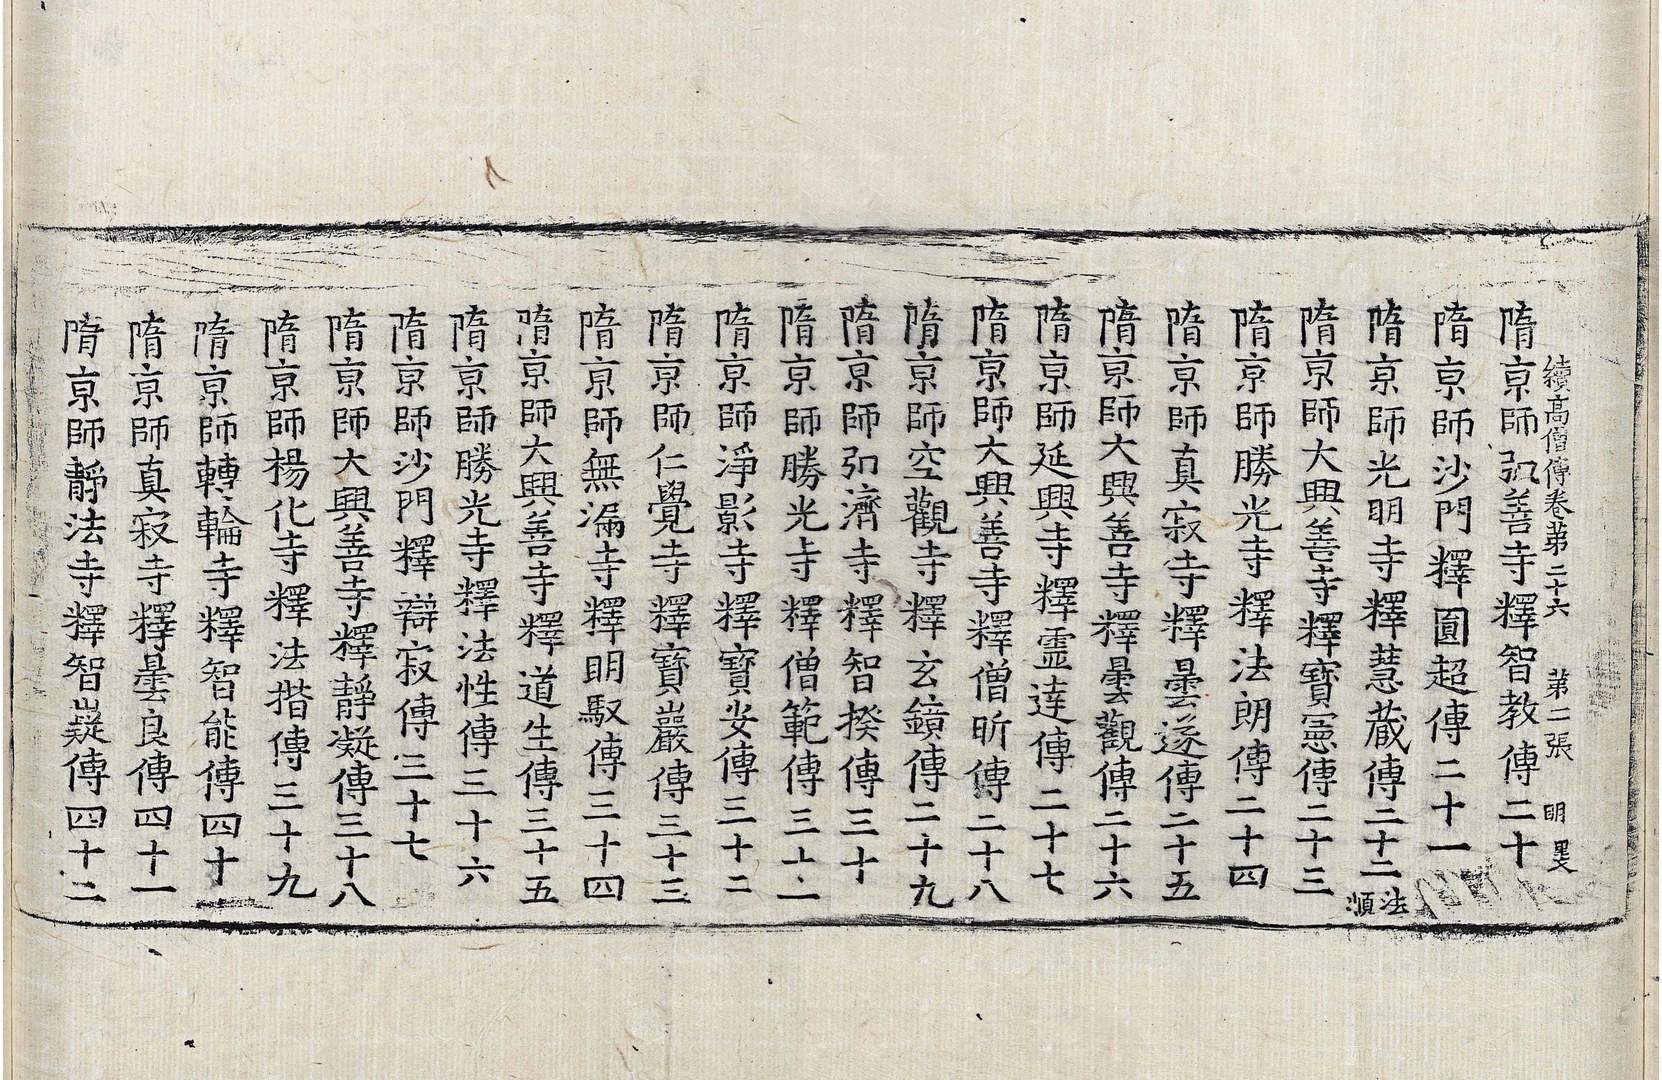 續高僧傳卷苐二十六　苐二張　明
隋亰師弘善寺釋智教傳二十
隋亰師沙門釋圓超傳二十一
隋亰師光明寺釋慧蔵傳二十二
法順
隋亰師大興善寺釋寶憲傳二十三
隋亰師勝光寺釋法朗傳二十四
隋亰師真寂寺釋曇遂傳二十五
隋亰師大興善寺釋曇觀傳二十六
隋亰師延興寺釋靈達傳二十七
隋亰師大興善寺釋僧昕傳二十八
隋亰師空觀寺釋玄鏡傳二十九
隋亰師弘濟寺釋智揆傳三十
隋亰師勝光寺釋僧範傳三十一
隋亰師淨影寺釋寶安傳三十二
隋亰師仁覺寺釋寶巖傳三十三
隋亰師無漏寺釋明馭傳三十四
隋亰師大興善寺釋道生傳三十五
隋亰師勝光寺釋法性傳三十六
隋亰師沙門釋辯寂傳三十七
隋亰師大興善寺釋靜凝傳三十八
隋亰師楊化寺釋法揩傳三十九
隋亰師轉輪寺釋智能傳四十
隋亰師真寂寺釋曇良傳四十一
隋亰師靜法寺釋智嶷傳四十二